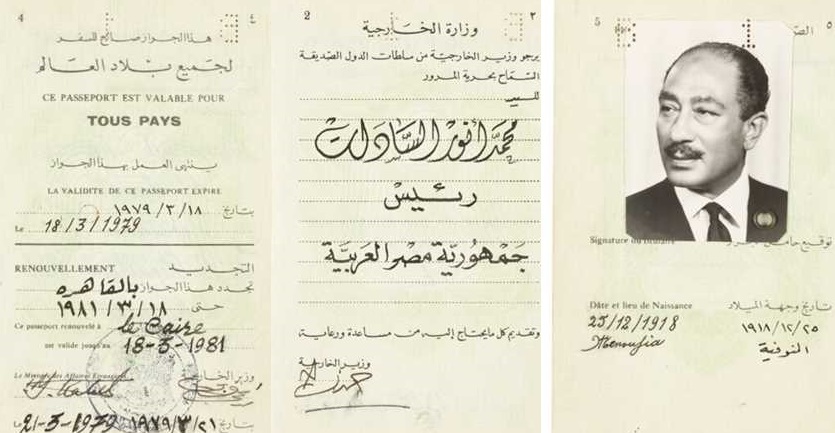 4
٤
هذا الجواز صالح للسفر
لجميع بلاد العالم
CE PASSEPORT EST VALABLE POUR
TOUS PAYS
ينتهى العمل بهذا الجواز
LA VALIDITE DE CE PASSPORT EXPIRE
بتاريخ ١٩٧٩/٣/١٨
Le 18/3/1979
RENOUVELLEMENT التجديد
تجدد هذا الجواز بالقاهره
حتى ١٩٨١/٣/١٨
Ce passeport renouvelé à le Caire
est valide jusqu'au 18-3-1981
Le Ministre des Affaires Etrangères وزير الخارجية
Le 21-3-1979 ١٩٧٩/٣/٢١ بتاريخ
2
٢
وزارة الخارجية
يرجو وزير الخارجية من سلطات الدول الصديقة
السماح بحرية المرور
للسيد
محمد أنور السادات
رئيس
جمهورية مصر العربية
وتقديم كل ما يحتاج إليه من مساعدة ورعاية
وزير الخارجية
5
٥
Signature du titulaire
توقيع حامل
Dâte et lieu de Naissance تاريخ وجهة الميلاد
25/12/1918 ١٩١٨/١٢/٢٥
Menoufia المنوفية